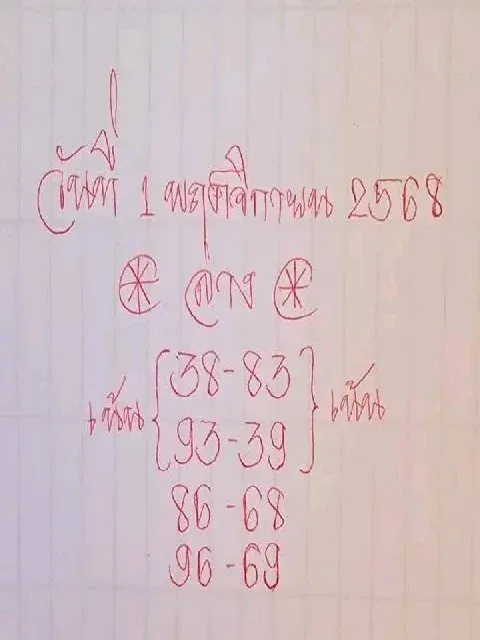 วันที่ 1 พฤศจิกายน 2568
ล่าง
38-83
เน้น { } เน้น
93-39
86-68
96-69